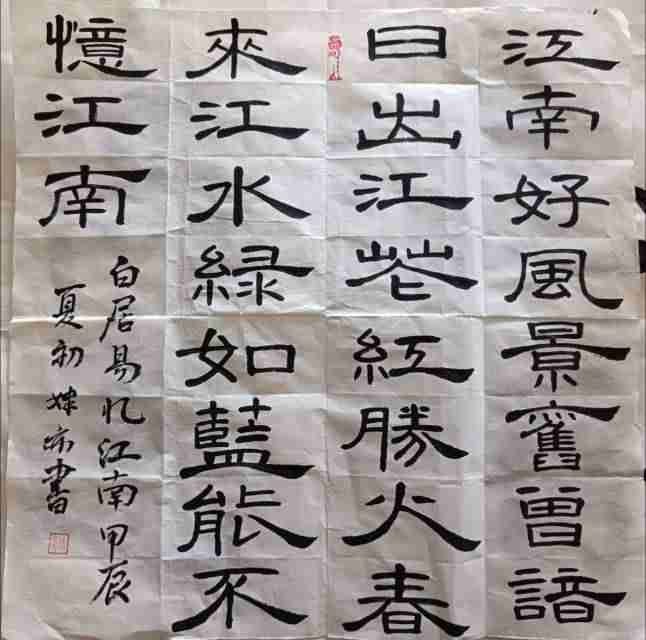 江南好風景舊曾諳
日出江花紅勝火春
來江水緑如藍能不
憶江南
白居易忆江南甲辰
夏初書